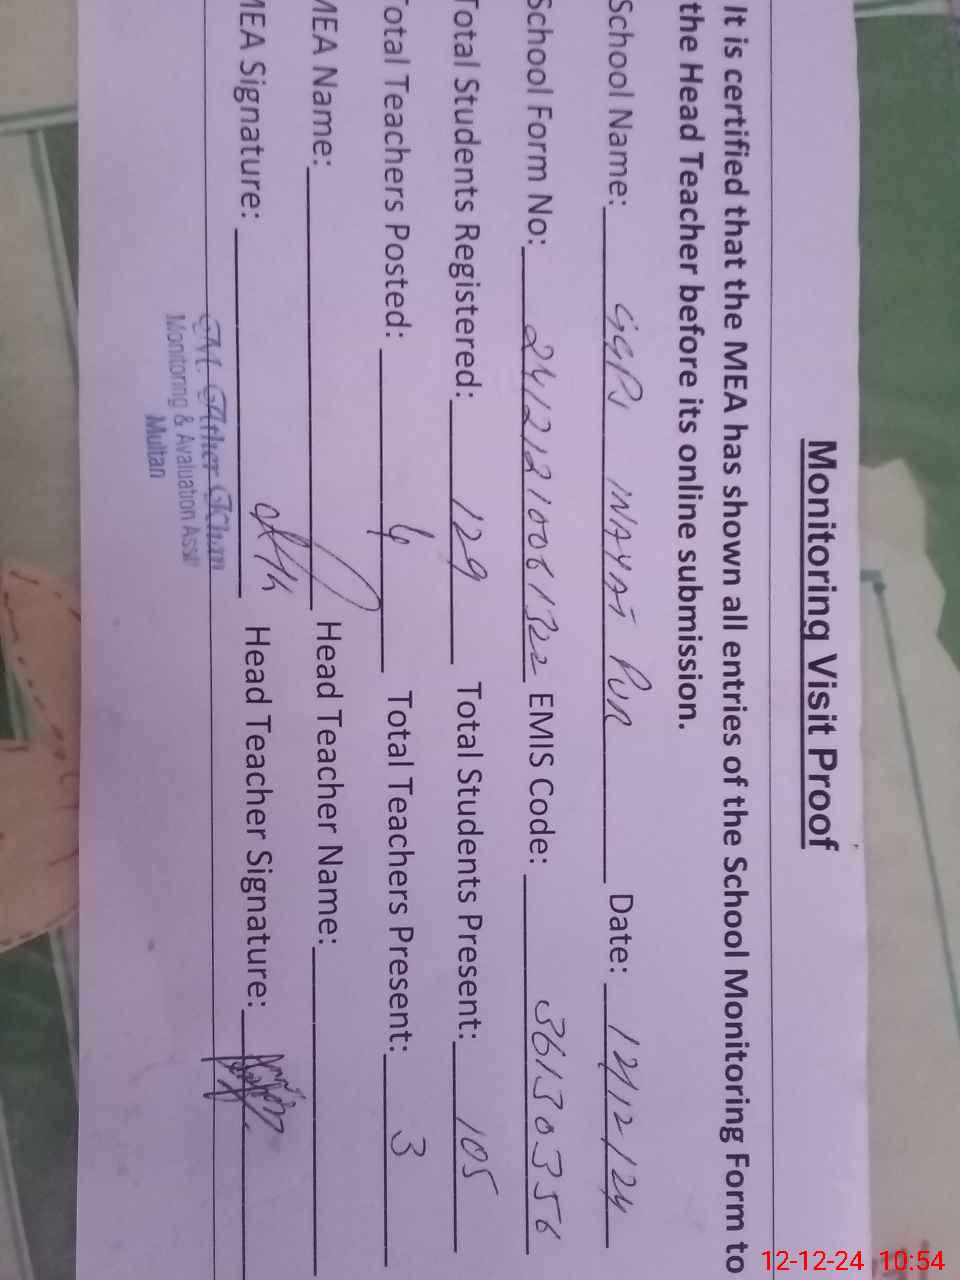 Monitoring Visit Proof
It is certified that the MEA has shown all entries of the School Monitoring Form to
the Head Teacher before its online submission.
School Name: GGPS INAYAT PUR Date: 12/12/24
School Form No: EMIS Code: 36130356
Total Students Registered: 129 Total Students Present: 105
Total Teachers Posted: 4 Total Teachers Present: 3
MEA Name: Head Teacher Name:
MEA Signature: Head Teacher Signature:
M. Ather Khan
Monitoring & Avaluation Asstt
Multan
12-12-24 10:54